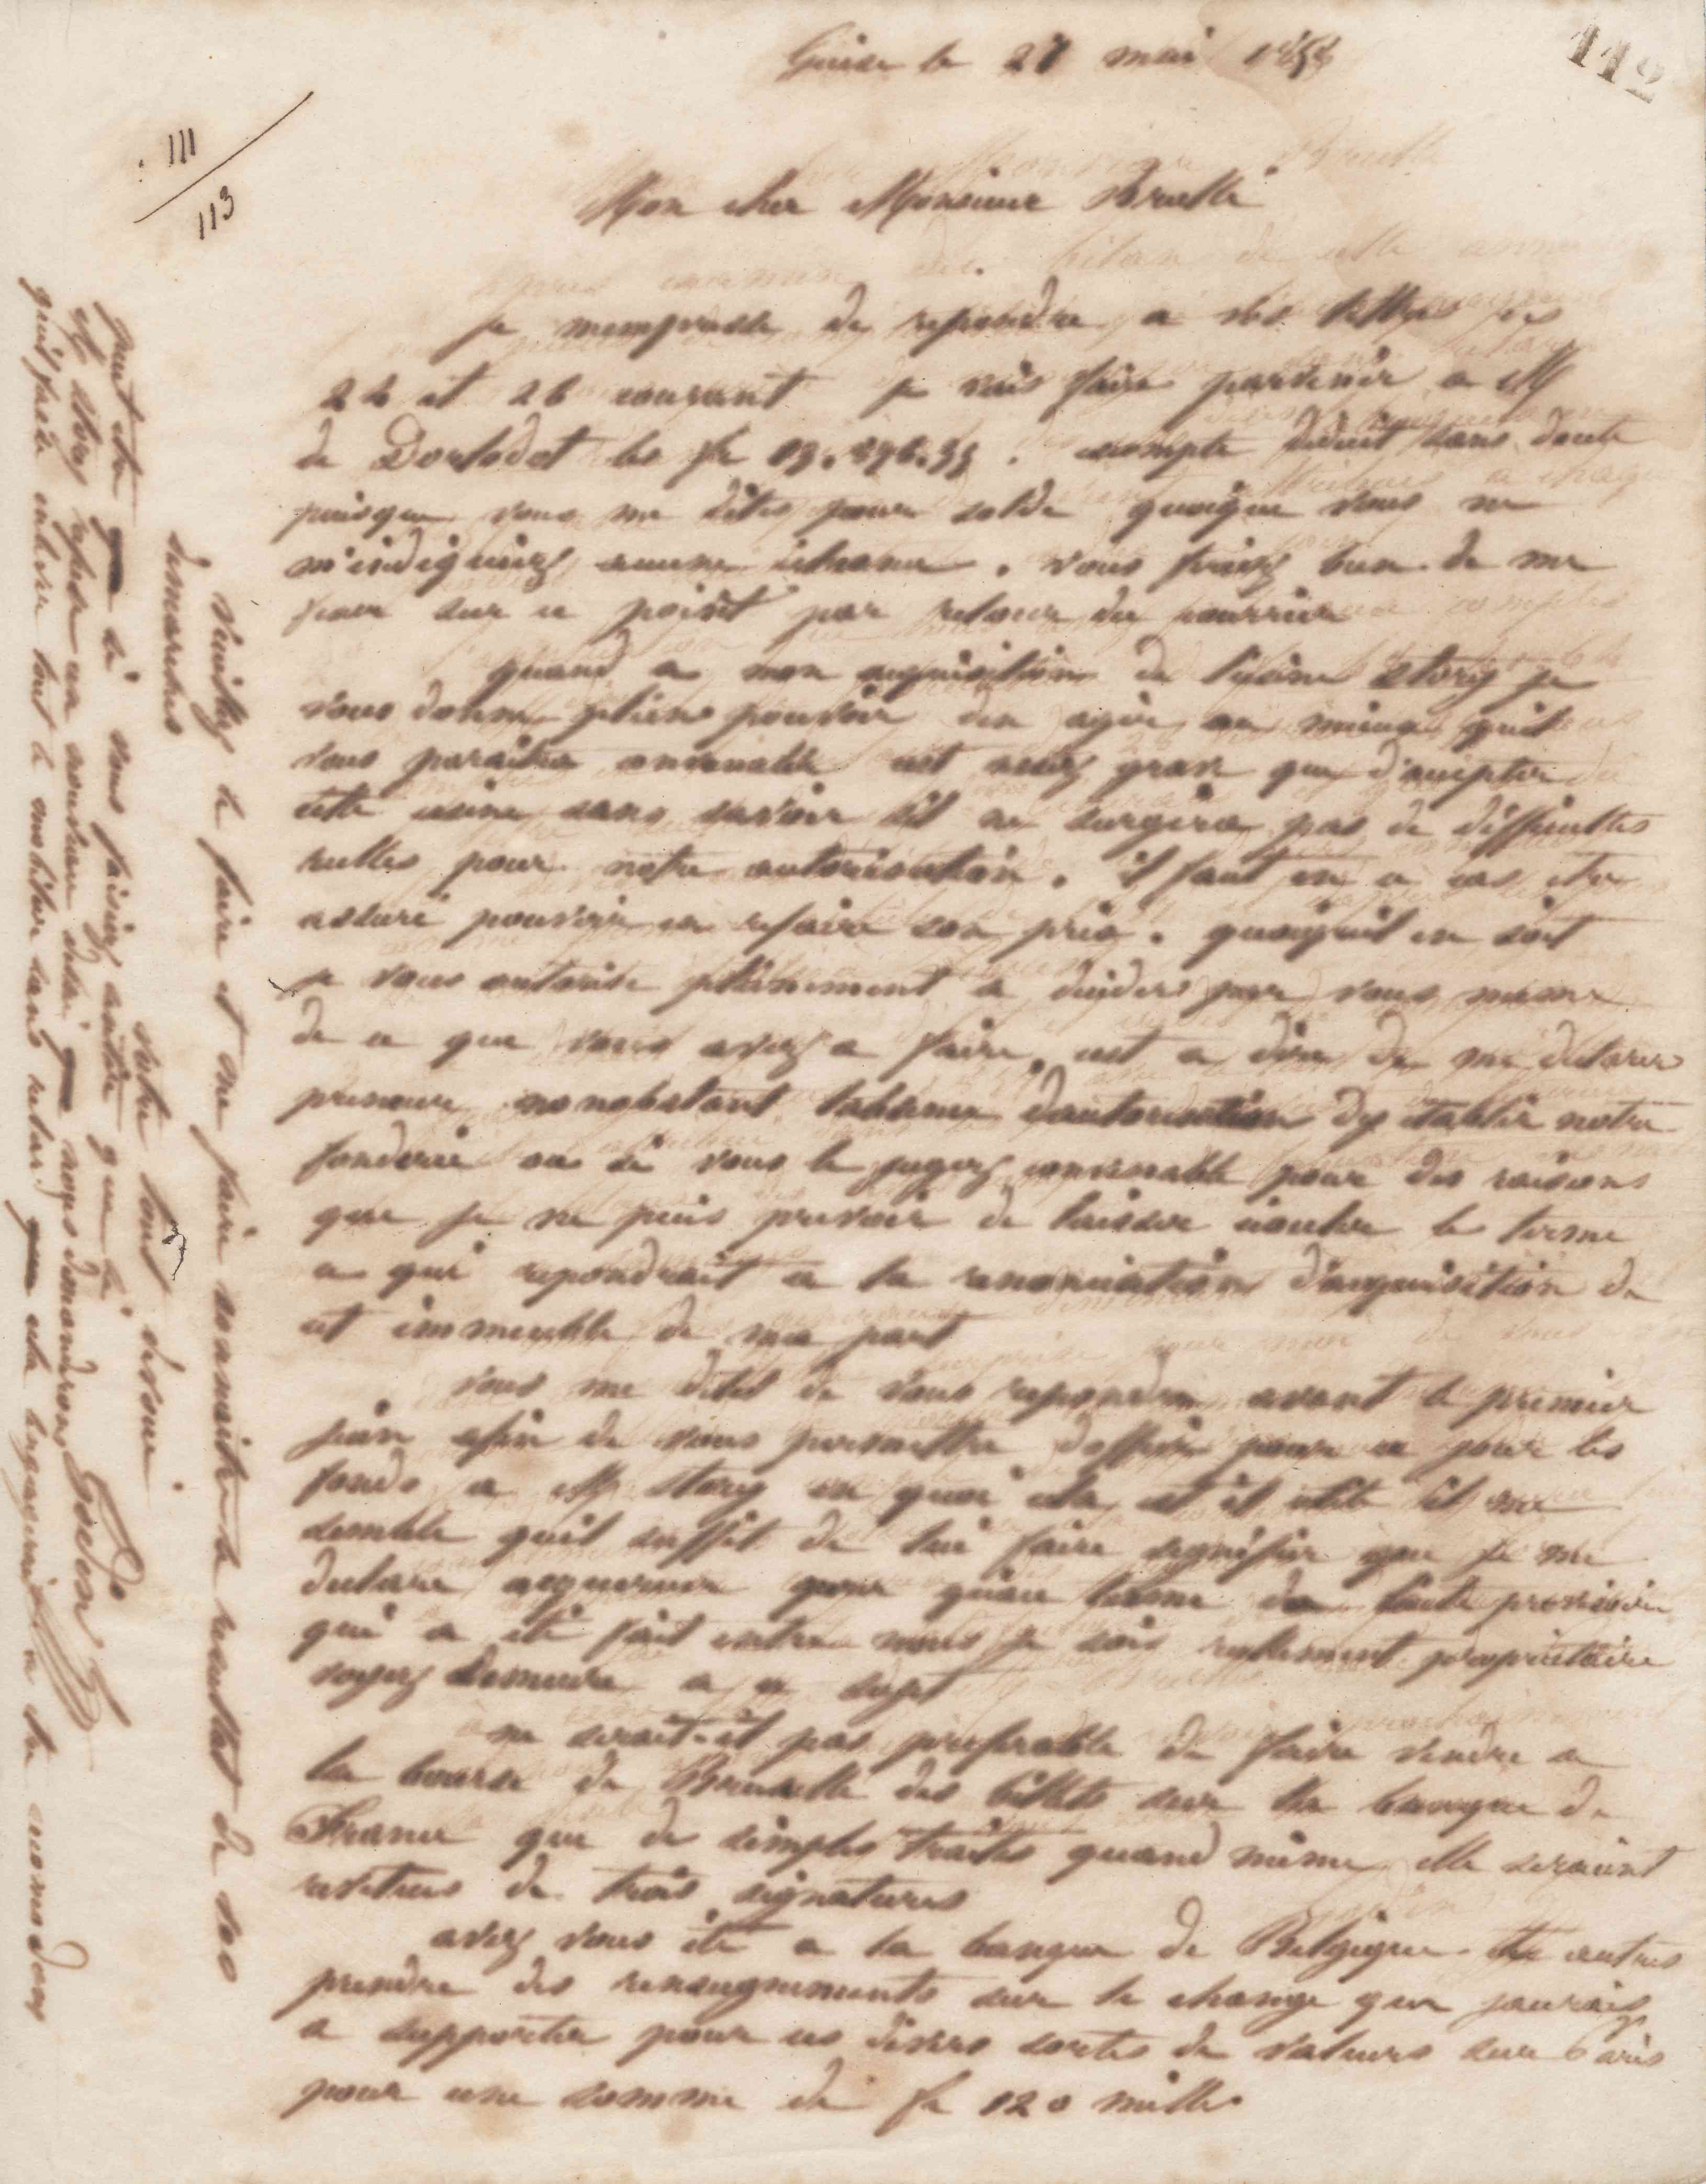 112
Guise le 27 mai 1858
111
113
Mon cher Monsieur Brullé
je mempresse de repondre a vos lettres des
24 et 26 courant je vais faire parvenir a M
de Dorlodot les fr compte sans doute
puisque vous me dites pour solde quoique vous ne
m'indiquiez aucune . vous feriez bien de me
sur ce point par retour du courrier
quand a mon acquisition de lusine Story je
vous donne pleins pouvoir den agir au mieux quil
vous paraitra convenable cest assez grave que d'accepter
cette usine sans savoir sil ne surgira pas de difficultes
reelles pour notre autorisation . il faut en ce cas etre
assuré pouvoir en refaire son prix . quoiquil en soit
je vous autorise pleinement a decider par vous meme
de ce que vous avez a faire, cest a dire de me declarer
preneur nonobstant labsence dautorisation dy etablir notre
fonderie ou si vous le jugez convenable pour des raisons
que je ne puis prevoir de laisser ecouler le terme
ce qui repondrait a la renonciation d'acquisition de
cet immeuble de ma part
vous me dites de vous repondre avant le premier
juin afin de vous permettre d'offrir pour ce jour les
fonds a M Story en quoi cela est il utile il me
semble quil suffit de lui faire signifier que je me
declare acquereur pour quau terme de lacte provisoire
qui a été fait entre nous je sois reellement proprietaire
voyez Demeure a ce sujet
ne serait-il pas preferable de faire vendre a
la bourse de Bruxelle des billets sur la banque de
France que de simples traites quand même elle seraient
revetues de trois signatures
avez vous été a la banque de Belgique et autres
prendre des renseignements sur le change que jaurais
a supporter pour ces divers sortes de valeurs sur Paris
pour une somme de fr 120 mille
Veuillez le faire et me faire connaitre le resultat de vos
demarches
votre tout devoué
Godin
peut etre si vous faisiez entendre que la
et Story un nouveau delai nous demanderons
quil fasse enlever tout le mobilier sans retard